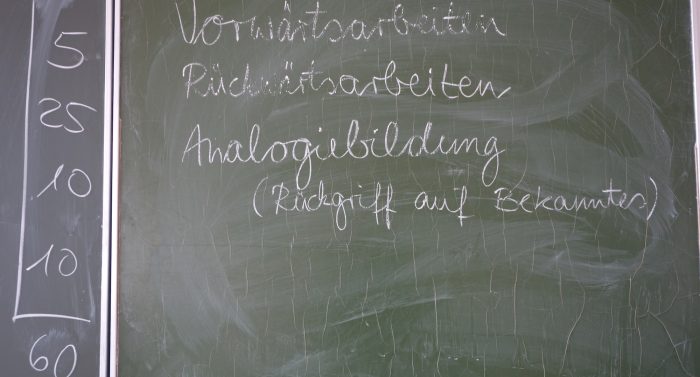 5
25
10
10
60
Vorwärtsarbeiten
Rückwärtsarbeiten
Analogiebildung
(Rückgriff auf Bekanntes)